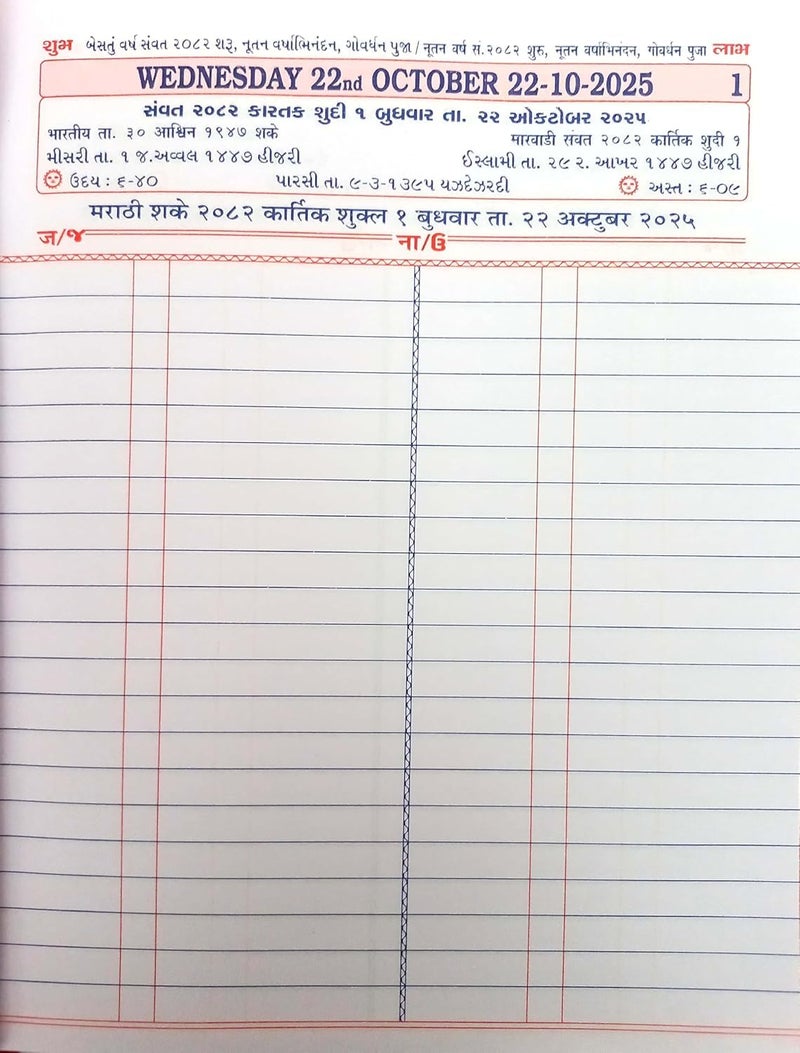 શુભ બેસતું વર્ષ સંવત ૨૦૮૨ શરૂ, નૂતન વર્ષાભિનંદન, ગોવર્ધન પુજા / नूतन वर्ष सं.२०८२ शुरु, नूतन वर्षाभिनंदन, गोवर्धन पुजा લાભ
WEDNESDAY 22nd OCTOBER 22-10-2025 1
સંવત ૨૦૮૨ કારતક શુદી ૧ બુધવાર તા. ૨૨ ઓકટોબર ૨૦૨૫
भारतीय ता. ३० आश्विन १९४७ शके मारवाडी संवत २०८२ कार्तिक शुदी १
મીસરી તા. ૧ જ.અવ્વલ ૧૪૪૭ હીજરી ઈસ્લામી તા. ૨૯ ર. આખર ૧૪૪૭ હીજરી
ઉદય : ૬-૪૦ પારસી તા. ૯-૩-૧૩૯૫ યઝદેઝરદી અસ્ત : ૬-૦૯
मराठी शके २०८२ कार्तिक शुक्ल १ बुधवार ता. २२ अक्टुबर २०२५
ज/જ ना/ઉ